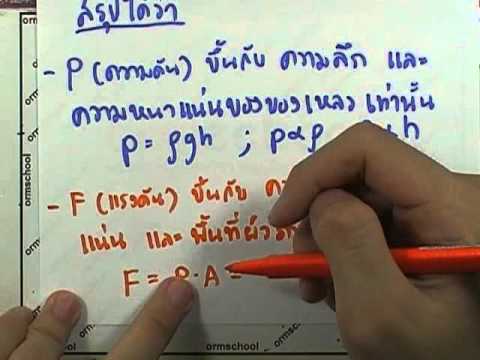 สรุปได้ว่า
- P (ความดัน) ขึ้นกับ ความลึก และ
ความหนาแน่นของของเหลว เท่านั้น
P = ρgh ; P∝ρ
- F (แรงดัน) ขึ้นกับ
แน่น และ พื้นที่
F = P·A =
ormschool
ormschool
ormschool